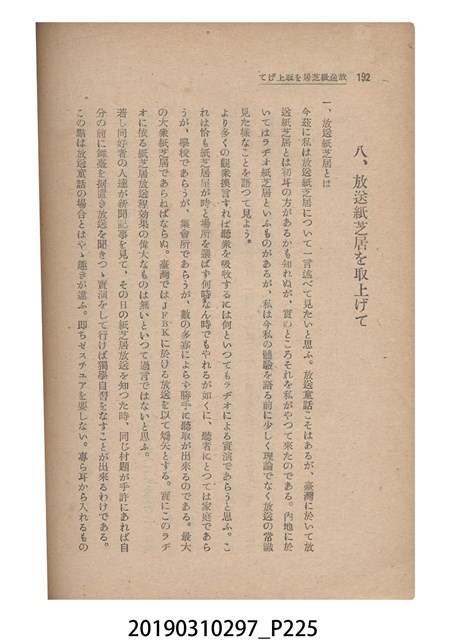 192
放送紙芝居を取上げて
八、放送紙芝居を取上げて
一、放送紙芝居とは
今玆に私は放送紙芝居について一言述べて見たいと思ふ。放送童話こそはあるが、臺灣に於いて放
送紙芝居とは初耳の方があるかも知れぬが、實のところそれを私がやつて來たのである。內地に於
いてはラヂオ紙芝居といふものがあるが、私は今私の體驗を語る前に少しく理論でなく放送の常識
見た樣なことを語つて見よう。
より多くの觀衆換言すれば聽衆を吸收するには何といつてもラヂオによる實演であらうと思ふ。こ
れは恰も紙芝居屋が時と場所を選ばず何時なん時でもやれるが如くに、聽者にとつては家庭であら
うが、學校であらうが、集會所であらうが、數の多寡によらず勝手に聽取が出來るのである。最大
の大衆紙芝居であらねばならぬ。臺灣ではJFBKに於ける放送を以て嚆矢とする。實にこのラヂ
オに依る紙芝居放送程効果の偉大なものは無いといつて過言ではないと思ふ。
若し同好者の人達が新聞記事を見て、その日の紙芝居放送を知つた時、同じ材題が手許にあれば自
分の前に舞臺を据置き放送を聞きつゝ實演をして行けば獨學自習をなすことが出來るわけである。
この點は放送童話の場合とはやゝ趣きが違ふ。卽ちゼスチュアを要しない。專ら耳から入れるもの
20190310297_P225